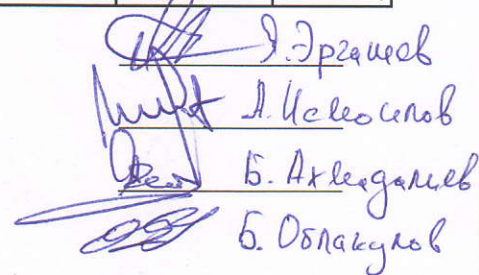 Э. Эргашев
А. Исмоилов
Б. Ахмадалиев
Б. Облакулов